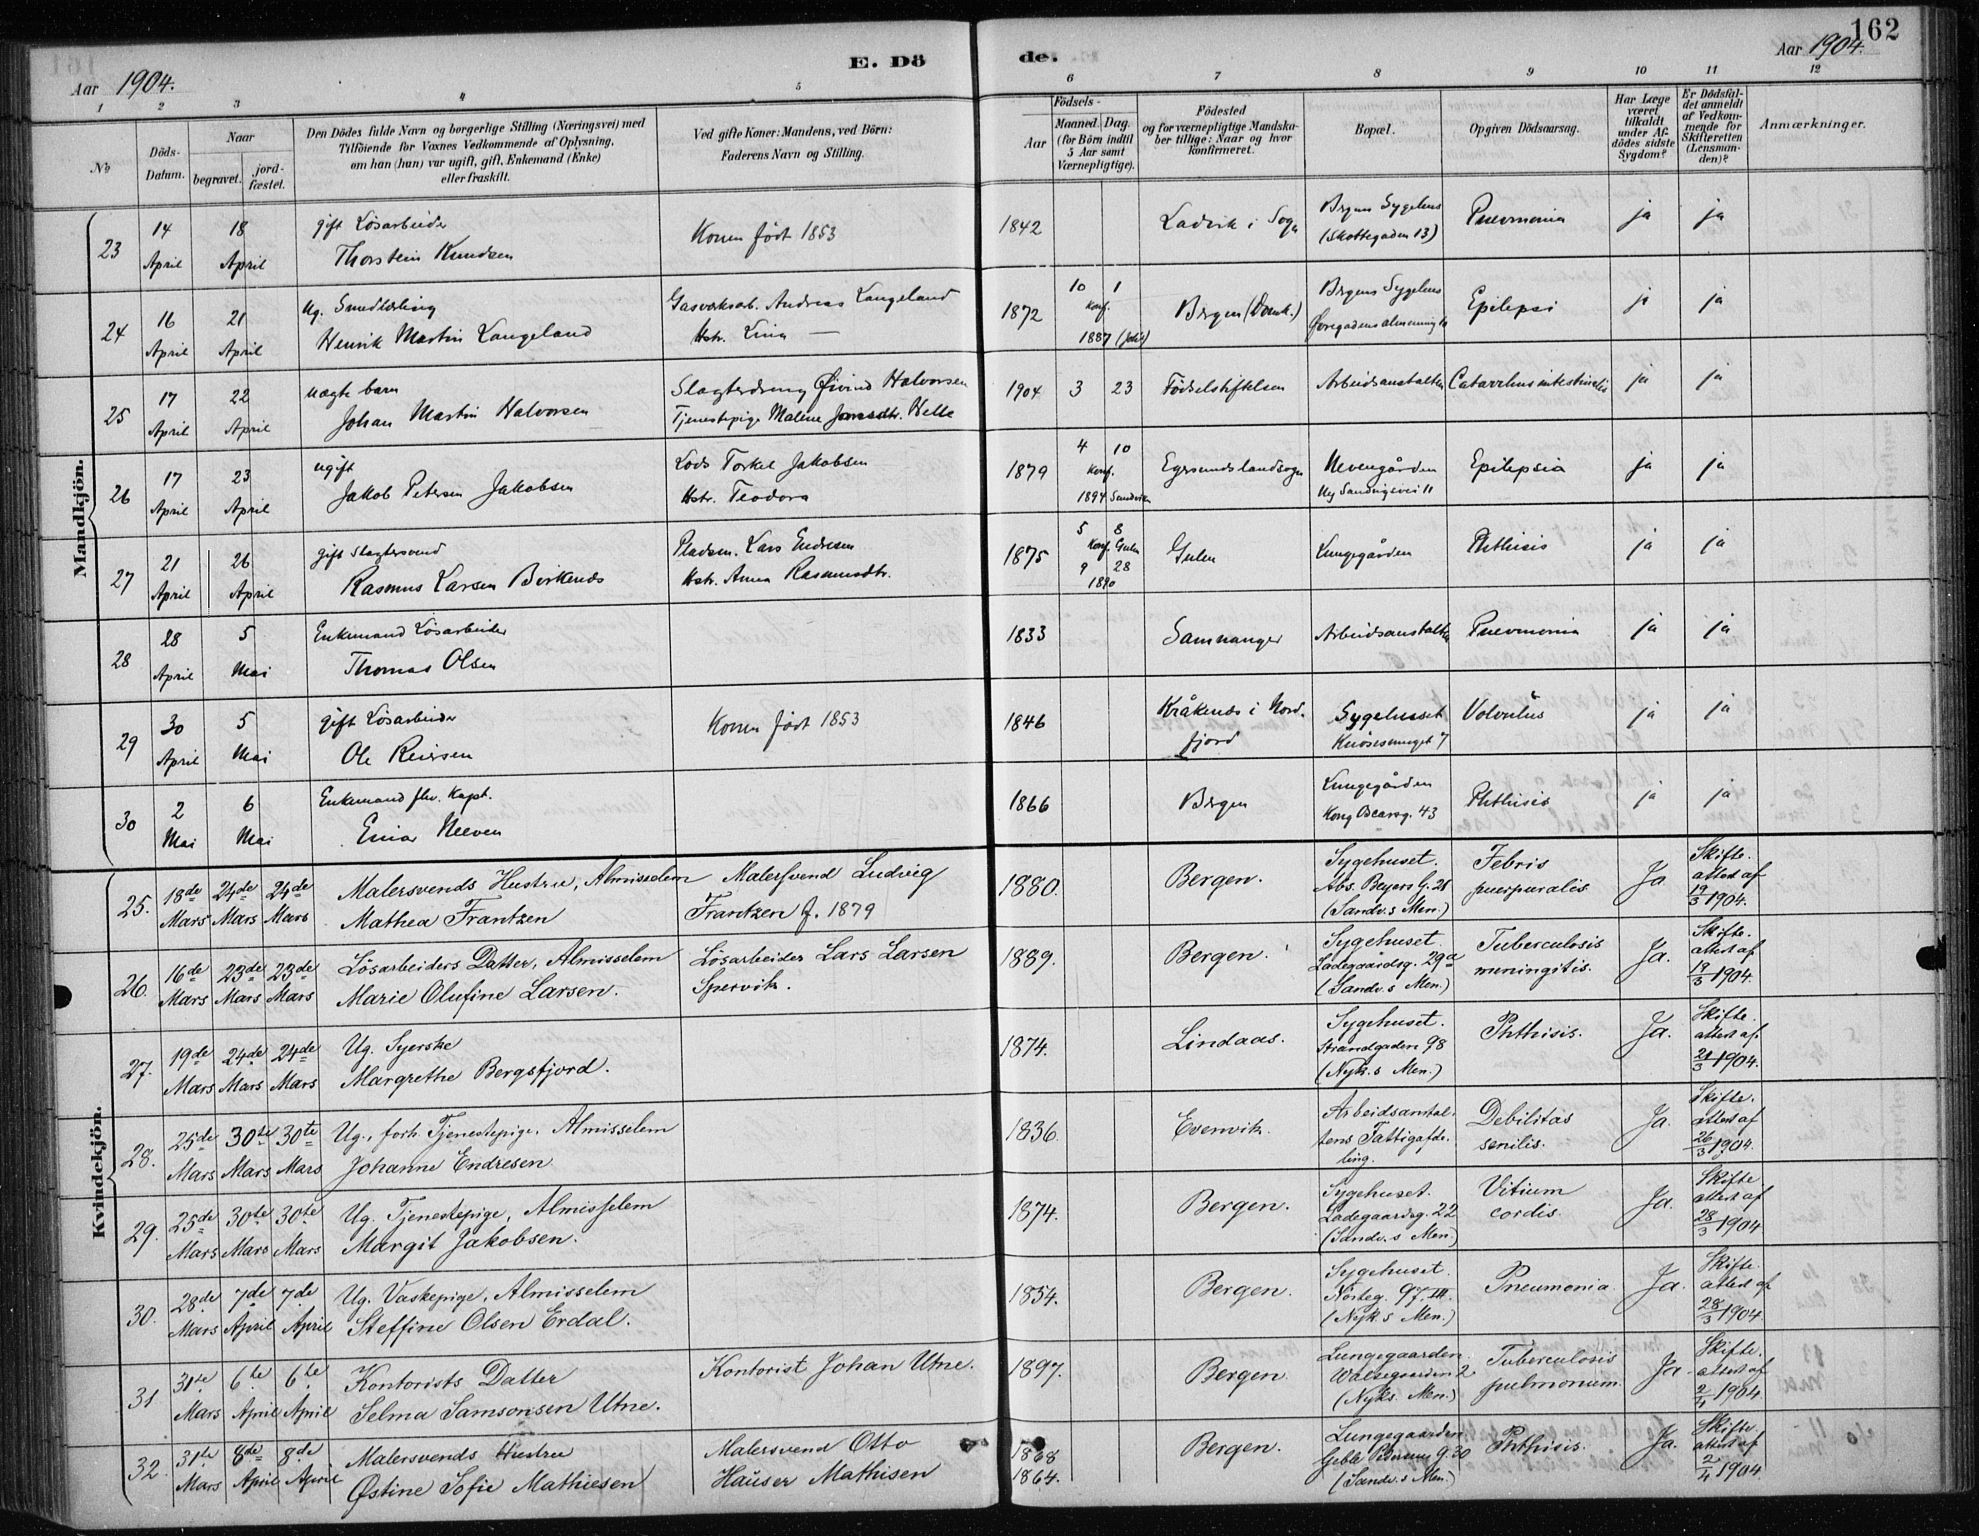 162
Aar 1904.
E. Dö
de.
Aar 1904.
1 2 3 4 5 6 7 8 9 10 11 12
No
Döds-Datum.
Naar
begravet.
jord-fæstet.
Den Dödes fulde Navn og borgerlige Stilling (Næringsvei) med
Tilföiende for Voxnes Vedkommende af Oplysning,
om han (hun) var ugift, gift, Enkemand (Enke)
eller fraskilt.
Ved gifte Koner: Mandens, ved Börn:
Faderens Navn og Stilling.
Födsels-
Aar
Maaned. Dag.
(for Börn indtil
5 Aar samt
Værnepligtige).
Födested
og for værnepligtige Mandska-
ber tillige: Naar og hvor
konfirmeret.
Bopæl.
Opgiven Dödsaarsag.
Har Læge
været
tilkaldt
under Af-
dödes sidste
Sygdom?
Er Dödsfal-
det anmeldt
af Vedkom-
mende for
Skifteretten
(Lensman-
den)?
Anmærkninger.
Mandkjön.
23 14 April 18 April gift Løsarbeider
Thorstein Knudsen
Konen født 1853
1842 Ladvik i Sogn
Bergens Sygehus
(Skottegaden 13)
Pneumonia ja ja
24 16 April 21 April Ug. Smedlærling
Henrik Martin Langeland
Gasværksarb. Andreas Langeland
Hstr. Lina —
1872 10 1
Konf.
1887
Bergen (Domk.)
Bergens Sygehus
Øvregadens almenning
Epilepsi ja ja
25 17 April 22 April uægte barn
Johan Martin Halvorsen
Slagterdreng Øivind Halvorsen
Tjenestepige Malene Jonasdtr. Helle
1904 3 23 Fødselstiftelsen Arbeidsanstalten Catarrhus intestinalis ja ja
26 17 April 23 April ugift
Jakob Petersen Jakobsen
Lods Torkel Jakobsen
Hstr. Teodora
1879 4 10
Konf.
1894 Sandviken
Egersunds landsogn
Nevengården
Ny Sandvigsvei 11
Epilepsia ja ja
27 21 April 26 April gift Slagtersvend
Rasmus Larsen Birkenæs
Pladsm. Lars Endresen
Hstr. Anna Rasmusdtr.
1875 5 8
Konf. Gulen
9 28
1890
Gulen Lungegården Phthisis ja ja
28 28 April 5 Mai Enkemand Løsarbeider
Thomas Olsen
1833 Samnanger Arbeidsanstalten Pneumonia ja ja
29 30 April 5 Mai gift Løsarbeider
Ole Reiersen
Konen født 1853
1846 Kråkenæs i Nord-
fjord
Sygehuset
Knøsesmuget 7
Volvulus ja ja
30 2 Mai 6 Mai Enkemand fhv. Kapt.
Einar Neeven
1866 Bergen
Lungegården
Kong Oscarsg. 43
Phthisis ja ja
Kvindekjön.
25. 18de Mars 24de Mars 24de Mars Malersvends Hustru, Almisselem
Mathea Frantzen
Malersvend Ludvig
Frantzen f. 1879
1880. Bergen.
Sygehuset.
Abs. Beyers G. 28
(Sandv.s Men.)
Febris
puerpuralis
Ja
Skifte.
attest af
19/3 1904.
26. 16de Mars 23de Mars 23de Mars Løsarbeiders Datter, Almisselem
Marie Olufine Larsen.
Løsarbeider Lars Larsen
Spervik.
1889. Bergen.
Sygehuset.
Ladegaardsg. 29a
(Sandv.s Men.)
Tuberculosis
meningitis.
Ja.
Skifte.
attest af
19/3 1904.
27. 19de Mars 24de Mars 24de Mars Ug. Syerske
Margrethe Bergsfjord.
1874. Lindaas.
Sygehuset.
Strandgaden 98
(Nyk.s Men.)
Phthisis.
Ja.
Skifte.
attest af
21/3 1904.
28. 25de Mars 30te Mars 30te Mars Ug., forh. Tjenestepige. Almisselem
Johanne Endresen
1836. Evenvik.
Arbeidsanstal.
tens Fattigafde.
ling.
Debilitas
senilis.
Ja.
Skifte.
attest af
26/3 1904.
29. 25de Mars 30te Mars 30te Mars Ug. Tjenestepige, Almisselem
Margit Jakobsen.
1874. Bergen.
Sygehuset.
Ladegaardsg. 22
(Sandv.s Men.)
Vitium
cordis.
Ja.
Skifte
attest af
28/3 1904
30. 28de Mars 7de April 7de April Ug. Vaskepige, Almisselem
Steffine Olsen Erdal.
1854. Bergen.
Sygehuset.
Nosteg. 97. III.
(Nyk.s Men.)
Pneumonia.
Ja.
Skifte.
attest af
28/3 1904
31 31te Mars 6te April 6te April Kontorists Datter
Selma Samsonsen Utne.
Kontorist Johan Utne.
1897. Bergen
Lungegaarden.
Walsegaarden 2
(Nyks. Men.)
Tuberculosis
pulmonum.
Ja.
Skifte.
attest af
2/4 1904.
32. 31te Mars 8de April 8de April Malersvends Hustru
Østine Sofie Mathiesen
Malersvend Otto
Hauser Mathisen
1868
1864. Bergen.
Lungegaarden
Geble Pedersens G. 30
(Sandv.s Men.)
Phthisis.
Ja.
Skifte.
attest af
2/4 1904